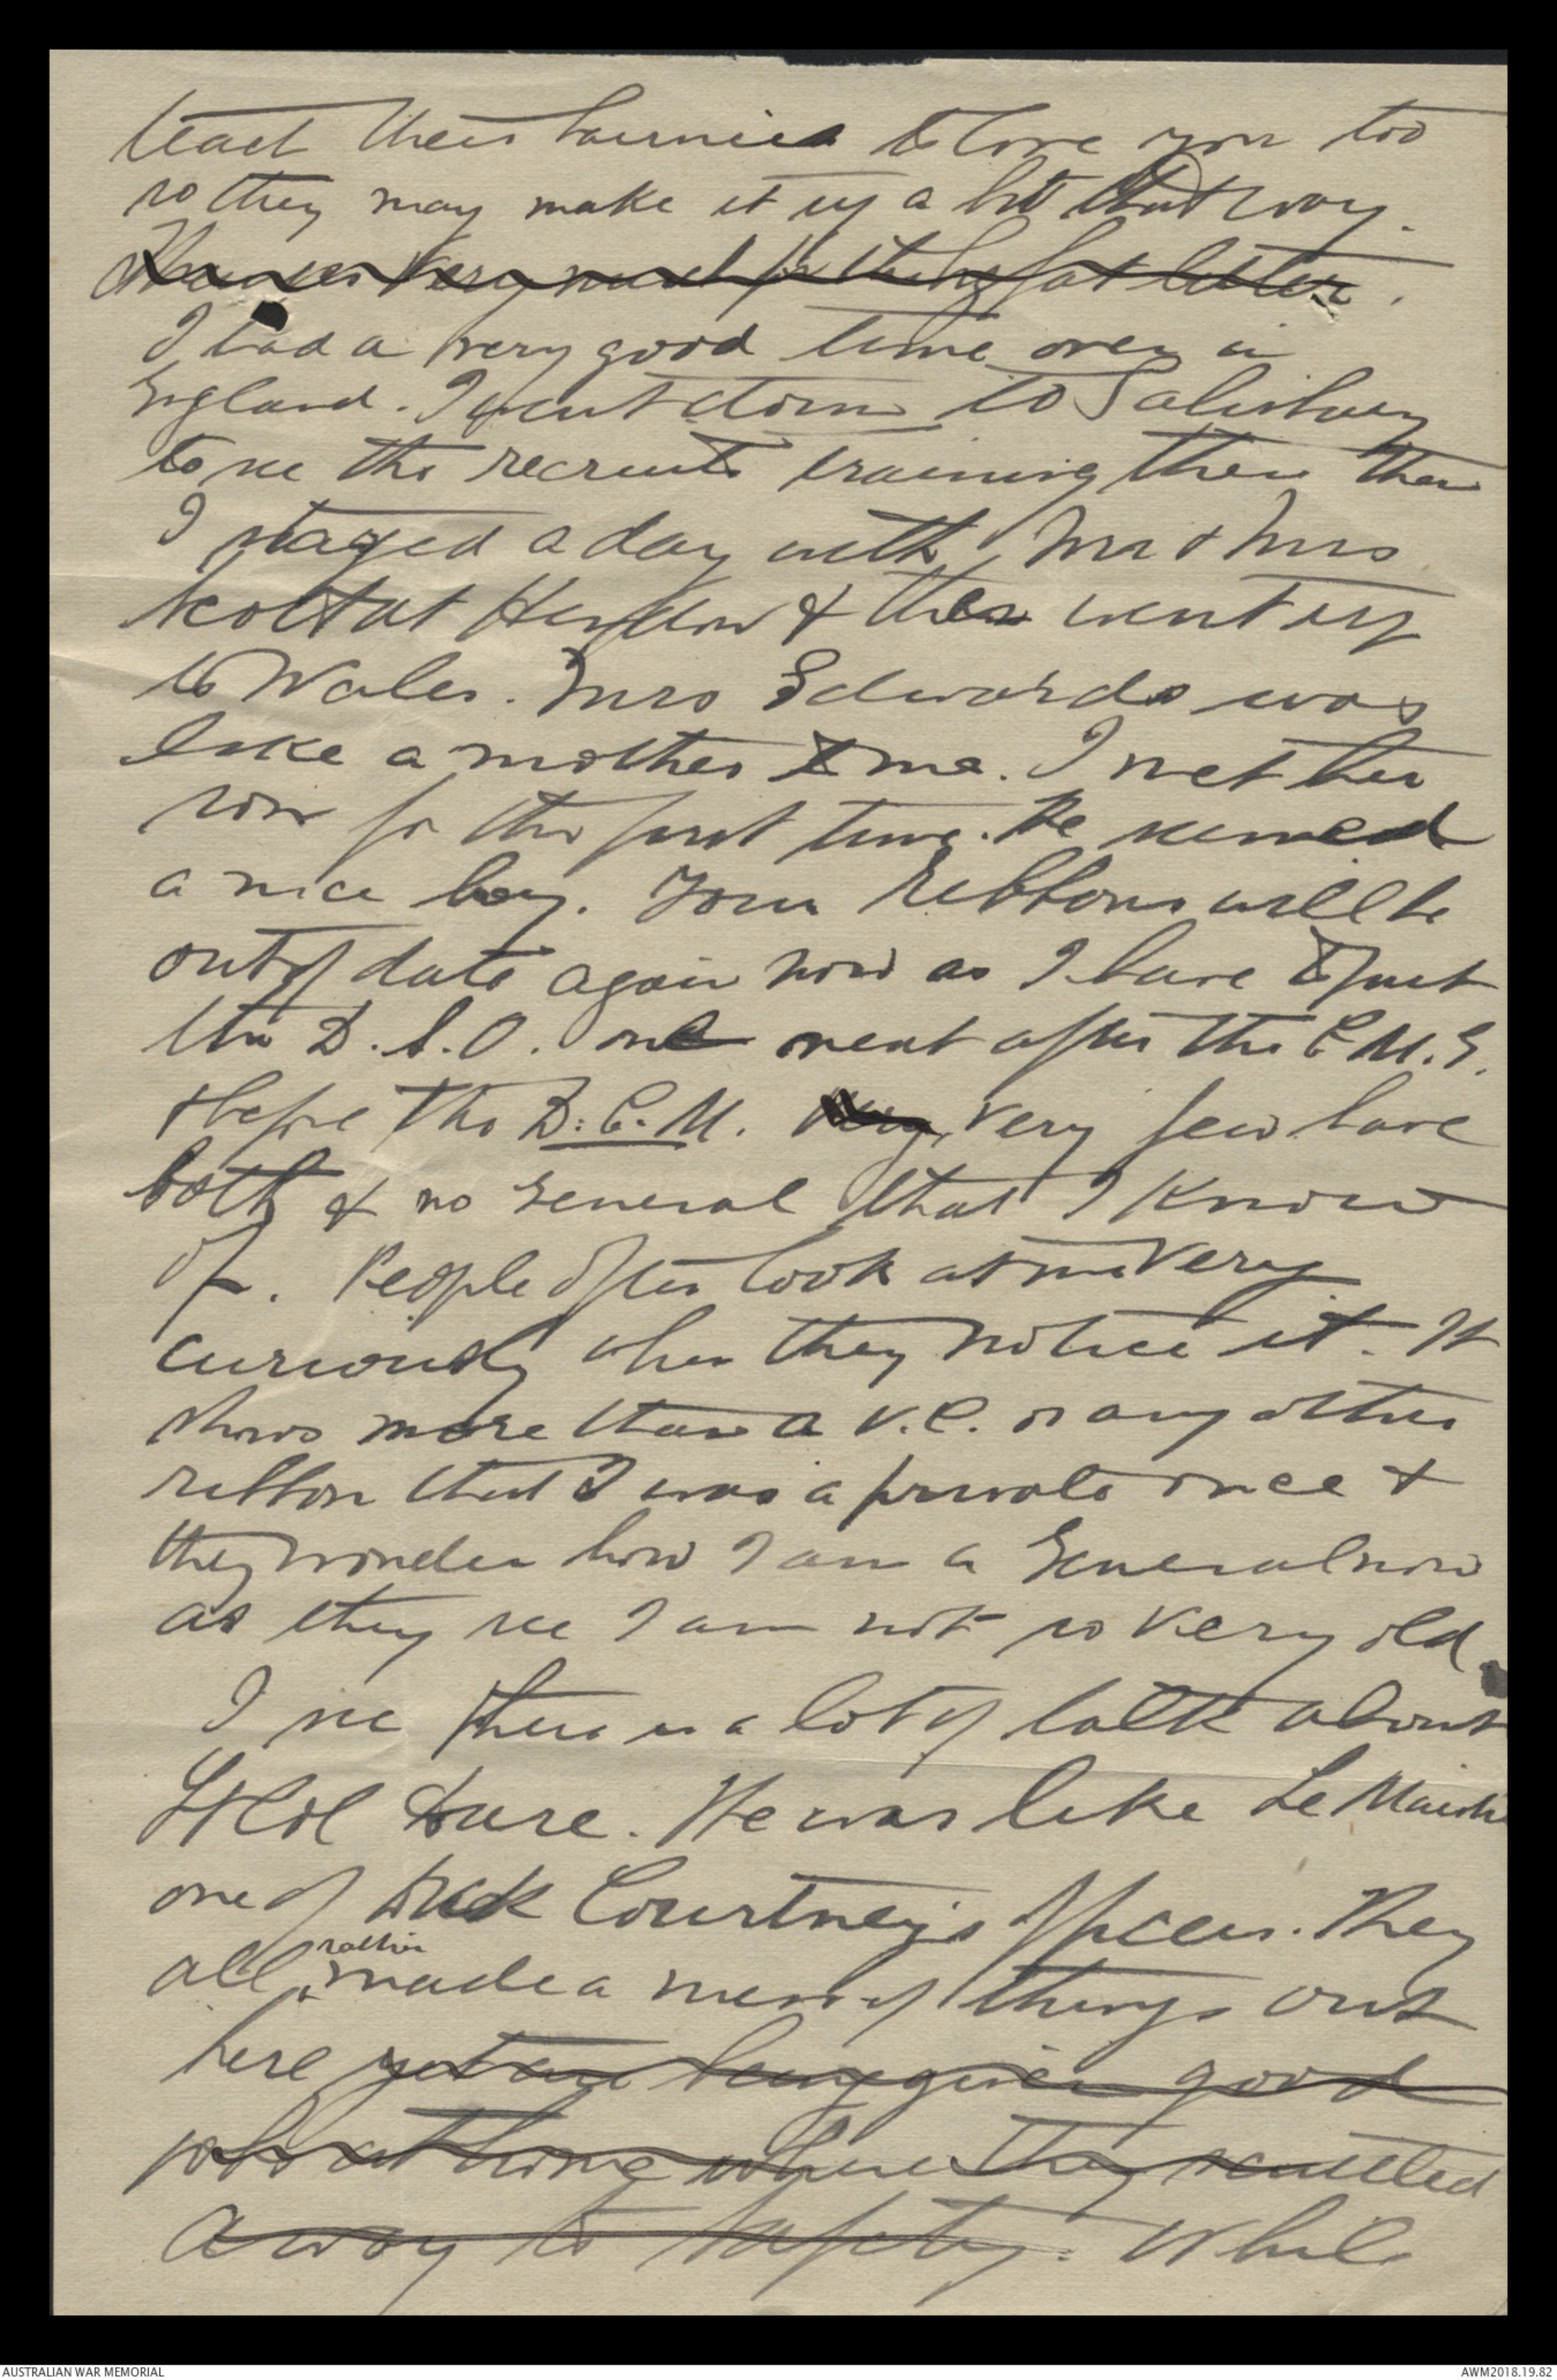 teach their bairnies to love you too
so they may make it up a bit that way.
Thanks very much for the big fat letter.
I had a very good time over in
England. I went down to Salisbury
to see the recruits training there then
I stayed a day with Mr & Mrs
Scott at Hendon & then went up
to Wales. Mrs Edwards was
like a mother to me. I met her
son for the first time. He seemed
a nice boy. Your ribbons will be
out of date again now as I have to put
the D.S.O. one next after the C.M.G.
& before the D.C.M. very very few have
both & no General that I know
of. People often look at me very
curiously when they notice it. It
shows more than a V.C. or any other
ribbon that I was a private once &
they wonder how I am a General now
as they see I am not so very old.
I see there is a lot of talk about
Lt Col Hare. He was like Le Maistre
one of Courtney's officers. They
all rather made a mess of things out
here yet are being given good
jobs at home where they scuttled
away to safety. While
AUSTRALIAN WAR MEMORIAL
AWM2018.19.82